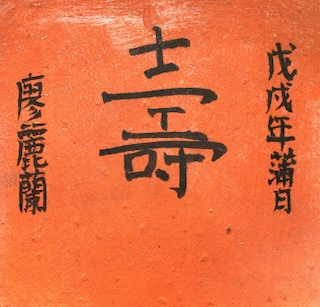 戊戌年蒲日
壽
廖麗蘭